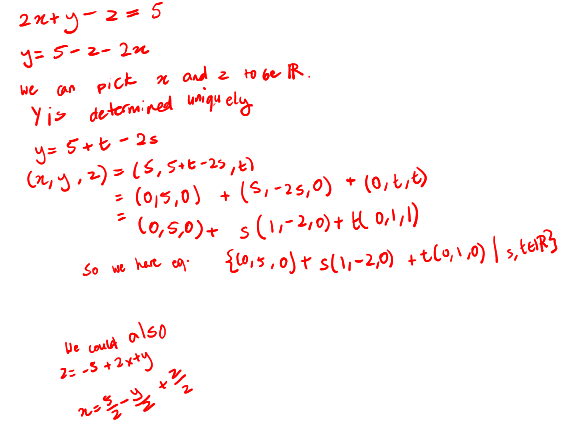 2x+y-z=5
y=5-z-2x
we can pick x and z to be ℝ.
Y is determined uniquely
y=5+t-2s
(x,y,z)=(s,5+t-2s,t)
=(0,5,0)+(s,-2s,0)+(0,t,t)
=(0,5,0)+s(1,-2,0)+t(0,1,1)
So we have eq. {(0,5,0)+s(1,-2,0)+t(0,1,0)|s,t∈ℝ}
We could also
z=-5+2x+y
x=5/2-y/2+z/2